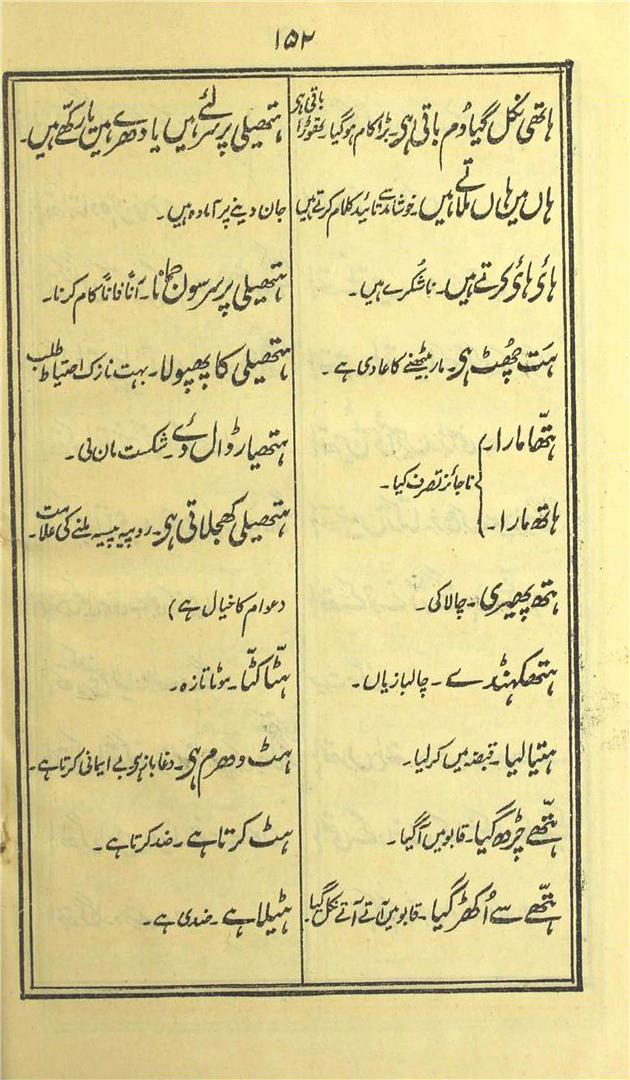 ۱۵۲
ہاتھی نکل گیا دُم باقی ہی۔ بڑا کام ہوگیا۔ تھوڑا باقی ہی
ہاں میں ہاں ملاتے ہیں۔ خوشامد سے تائید کلام کرتے ہیں
ہائی ہائی کرتے ہیں۔ ناشُکرے ہیں۔
ہَت چُھٹ ہی۔ مار بیٹھنے کا عادی ہے۔
ہتّھا مارا۔
ناجائز تصرف کیا۔
ہاتھ مارا۔
ہتھ پھیری۔ چالاکی۔
ہتھکہنڈے۔ چالبازیاں۔
ہتیالیا۔ قبضہ میں کرلیا۔
ہتّھے چڑھ گیا۔ قابو میں آگیا۔
ہتّھے سے اُکھڑ گیا۔ قابو میں آتے آتے نکل گیا۔
ہتھیلی پر سر لئے ہیں یا دھرے ہیں یا رکھے ہیں۔
جان دینے پر آمادہ ہیں۔
ہتھیلی پر سرسوں جمانا۔ آناً فاناً کام کرنا۔
ہتھیلی کا پھپولا۔ بہت نازک احتیاط طلب
ہتھیار ڈال دئے۔ شکست مان لی۔
ہتھیلی کھجلاتی ہی۔ روپیہ پیسہ ملنے کی علامت
(عوام کا خیال ہے)
ہٹّا کٹّا۔ موٹا تازہ۔
ہٹ دھرم ہی۔ دغاباز ہی بے ایمانی کرتا ہے۔
ہٹ کرتا ہے۔ ضد کرتا ہے۔
ہٹیلا ہے۔ ضدی ہے۔